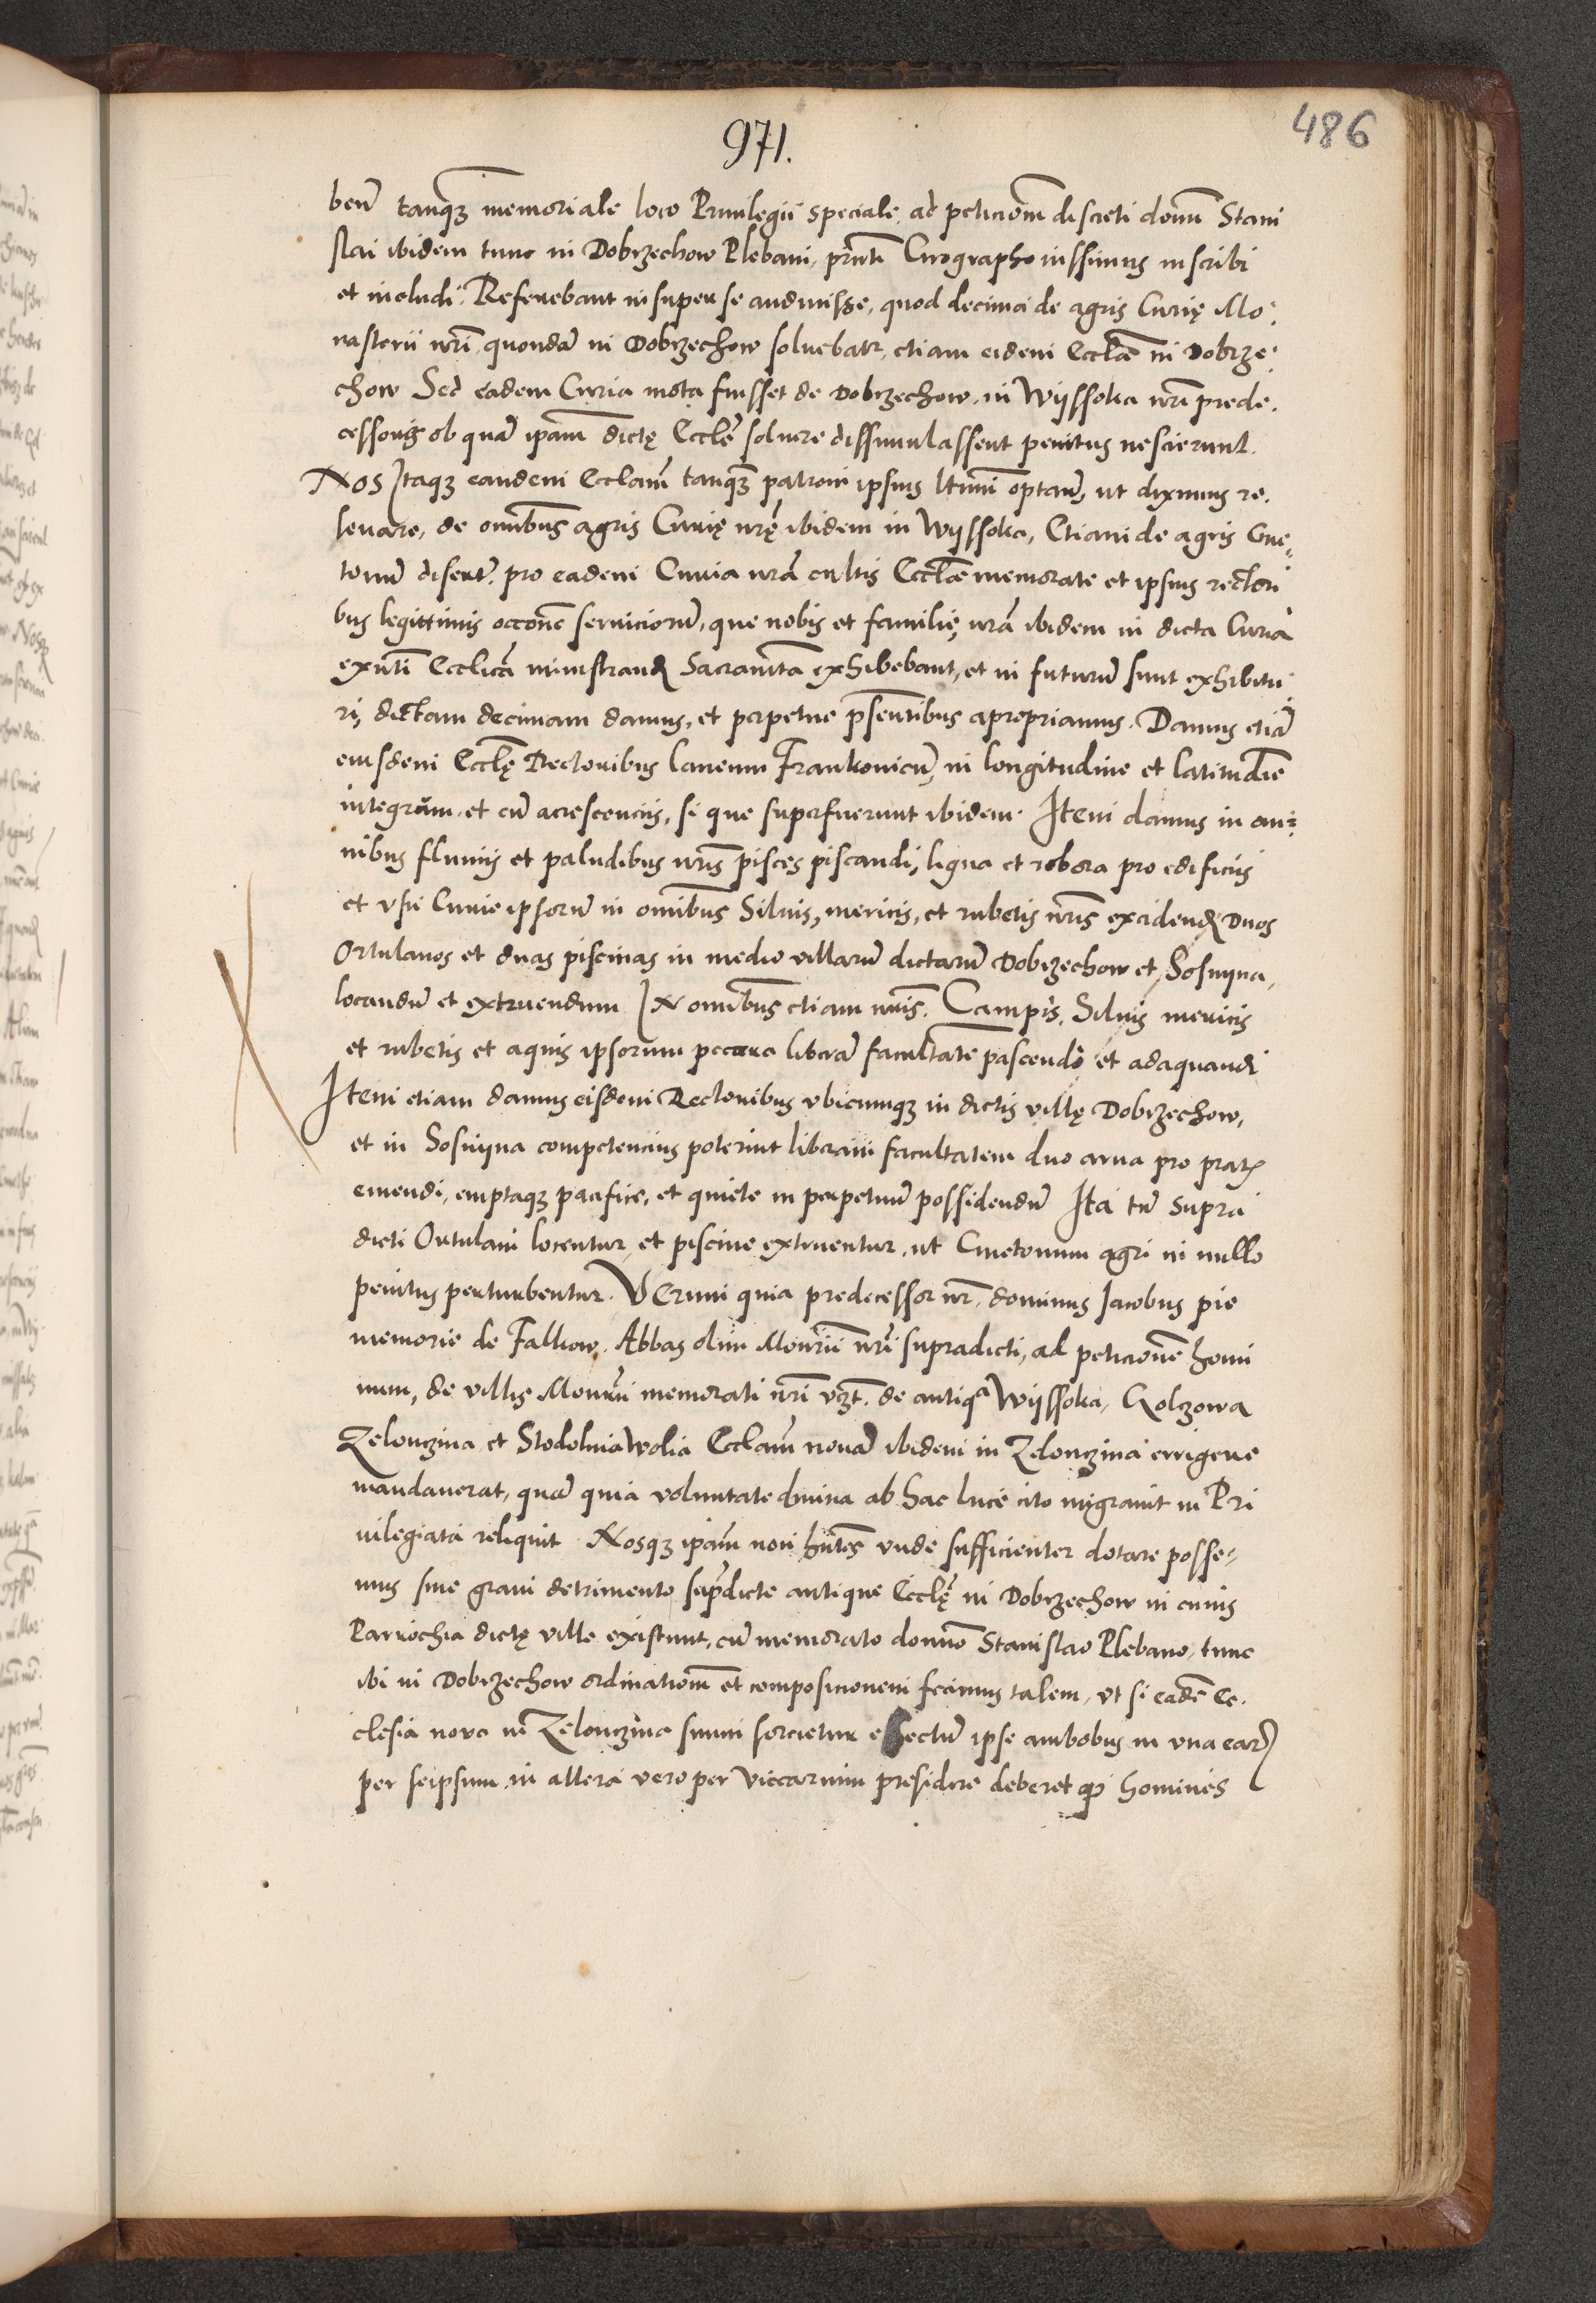 971.
486
beñ tanq̃ʒ memoriale loco Priuilegii speciale, ad peticionẽ discreti dom̃i Stani
slai ibidem tunc in Dobrzechow Plebani, pñti Cirographo iussimus inscribi
et includi. Referebant insuper se audiuisse, quod decima de agris Curię Mo:
nasterii nr̃i quondã in Dobrzechow soluebatr, etiam eidem Eccl̃e in Dobrze:
chow Sed eadem Curia mota fuisset de Dobrzechow, in Wyssoka nr̃i prede.
cessoris ob quã ip̃am dictę Eccl̃e soluere dissimulassent penitus nescierunt.
Nos Itaqʒ eandem Eccl̃am tanq̃ʒ patroni ipsius l̃timi optam̃, ut diximus re.
leuare, de om̃ibus agris Curię nr̃ę ibidem in Wyssoka, Etiam de agris Cme=
tonũ disert̃, pro eadem Curia nr̃a cultis Eccl̃ae memorate et ipsius rectori
bus legittimis occõne seruiciorũ, que nobis et familię, nr̃a ibidem in dicta Curia
exñti Eccl̃ica ministrand̃ Sacram̃ta exhibebant, et in futurũ sunt exhibitu
ri, dictam decimam damus, et perpetue p̃sentibus apropriamus. Damus etiã
eiusdem Eccl̃ę Rectoribus laneum Frankonicũ, in longitudine et latitudĩe
integrum, et cũ acrescenciis, si que superfuerunt ibidem. Item damus in om=
nibus fluuiis et paludibus nr̃is pisces piscandi, ligna et robora pro edificiis
et vsu Curie ipsorũ in om̃ibus Siluis, mericis, et rubetis nr̃is excidend̃ Duos
Ortulanos et duas piscinas in medio villarũ dictarũ Dobrzechow et Sosnyna,
locandũ et extruendum IN om̃ibus etiam nr̃is. Campis, Siluis mericis
et rubetis et aquis ipsorum peccora liberã facultatẽ pascendi et adaquandi
Item etiam damus eisdem Rectoribus vbicumqʒ in dictis villę Dobrzechow,
et in Sosnyna competencius poterint liberam facultatem duo arua pro prat̃
emendi, emptaqʒ pacifice, et quiete in perpetuũ possidendũ Ita tñ supra
dicti Ortulani locentur, et piscine extruentur, ut Cmetonum agri in nullo
penitus perturbentur. VErum quia predecessor nr̃, dominus Jacobus pie
memorie de Falkow. Abbas olim Monr̃ii nr̃i supradicti, ad peticionẽ homi
num, de villis Monr̃ii memorati nr̃i vʒt. de antiqª Wyssoka, Golczowa
Zelonczina et Stodolnia Wolia Eccl̃am nouã ibidem in Zelonczina errigere
mandauerat, quã quia voluntate diuina ab hac luce cito migrauit in Pri
uilegiata reliquit Nosqʒ ip̃am non hñtes vnde sufficienter dotare posse=
mus sine graui detrimento sup̃dicte antique Eccl̃ę in Dobrzechow in cuius
Parrochia dictę ville existunt, cũ memorato dom̃o Stanislao Plebano, tunc
ibi in Dobrzechow ordinationẽ et composicionem fecimus talem, vt si eadẽ Ec.
clesia noua in Zelonczina suum sorcietur effectũ ipse ambobus in vna ear̃
per seipsum in altera vero per Viccarium presidere deberet qʒ homines